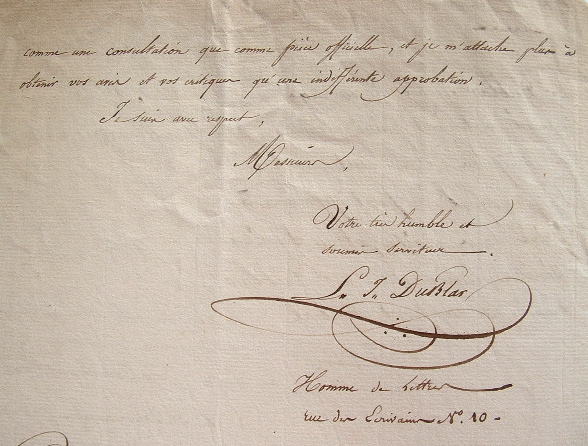 comme une consultation que comme pièce officielle, et je m'attache plus à
obtenir vos avis et vos critiques qu'une indifférente approbation.
Je suis avec respect,
Messieurs,
Votre très humble et
soumis serviteur.
Ls. Js. DuBlar
Homme de Lettres
rue des Ecrivains No. 10 -